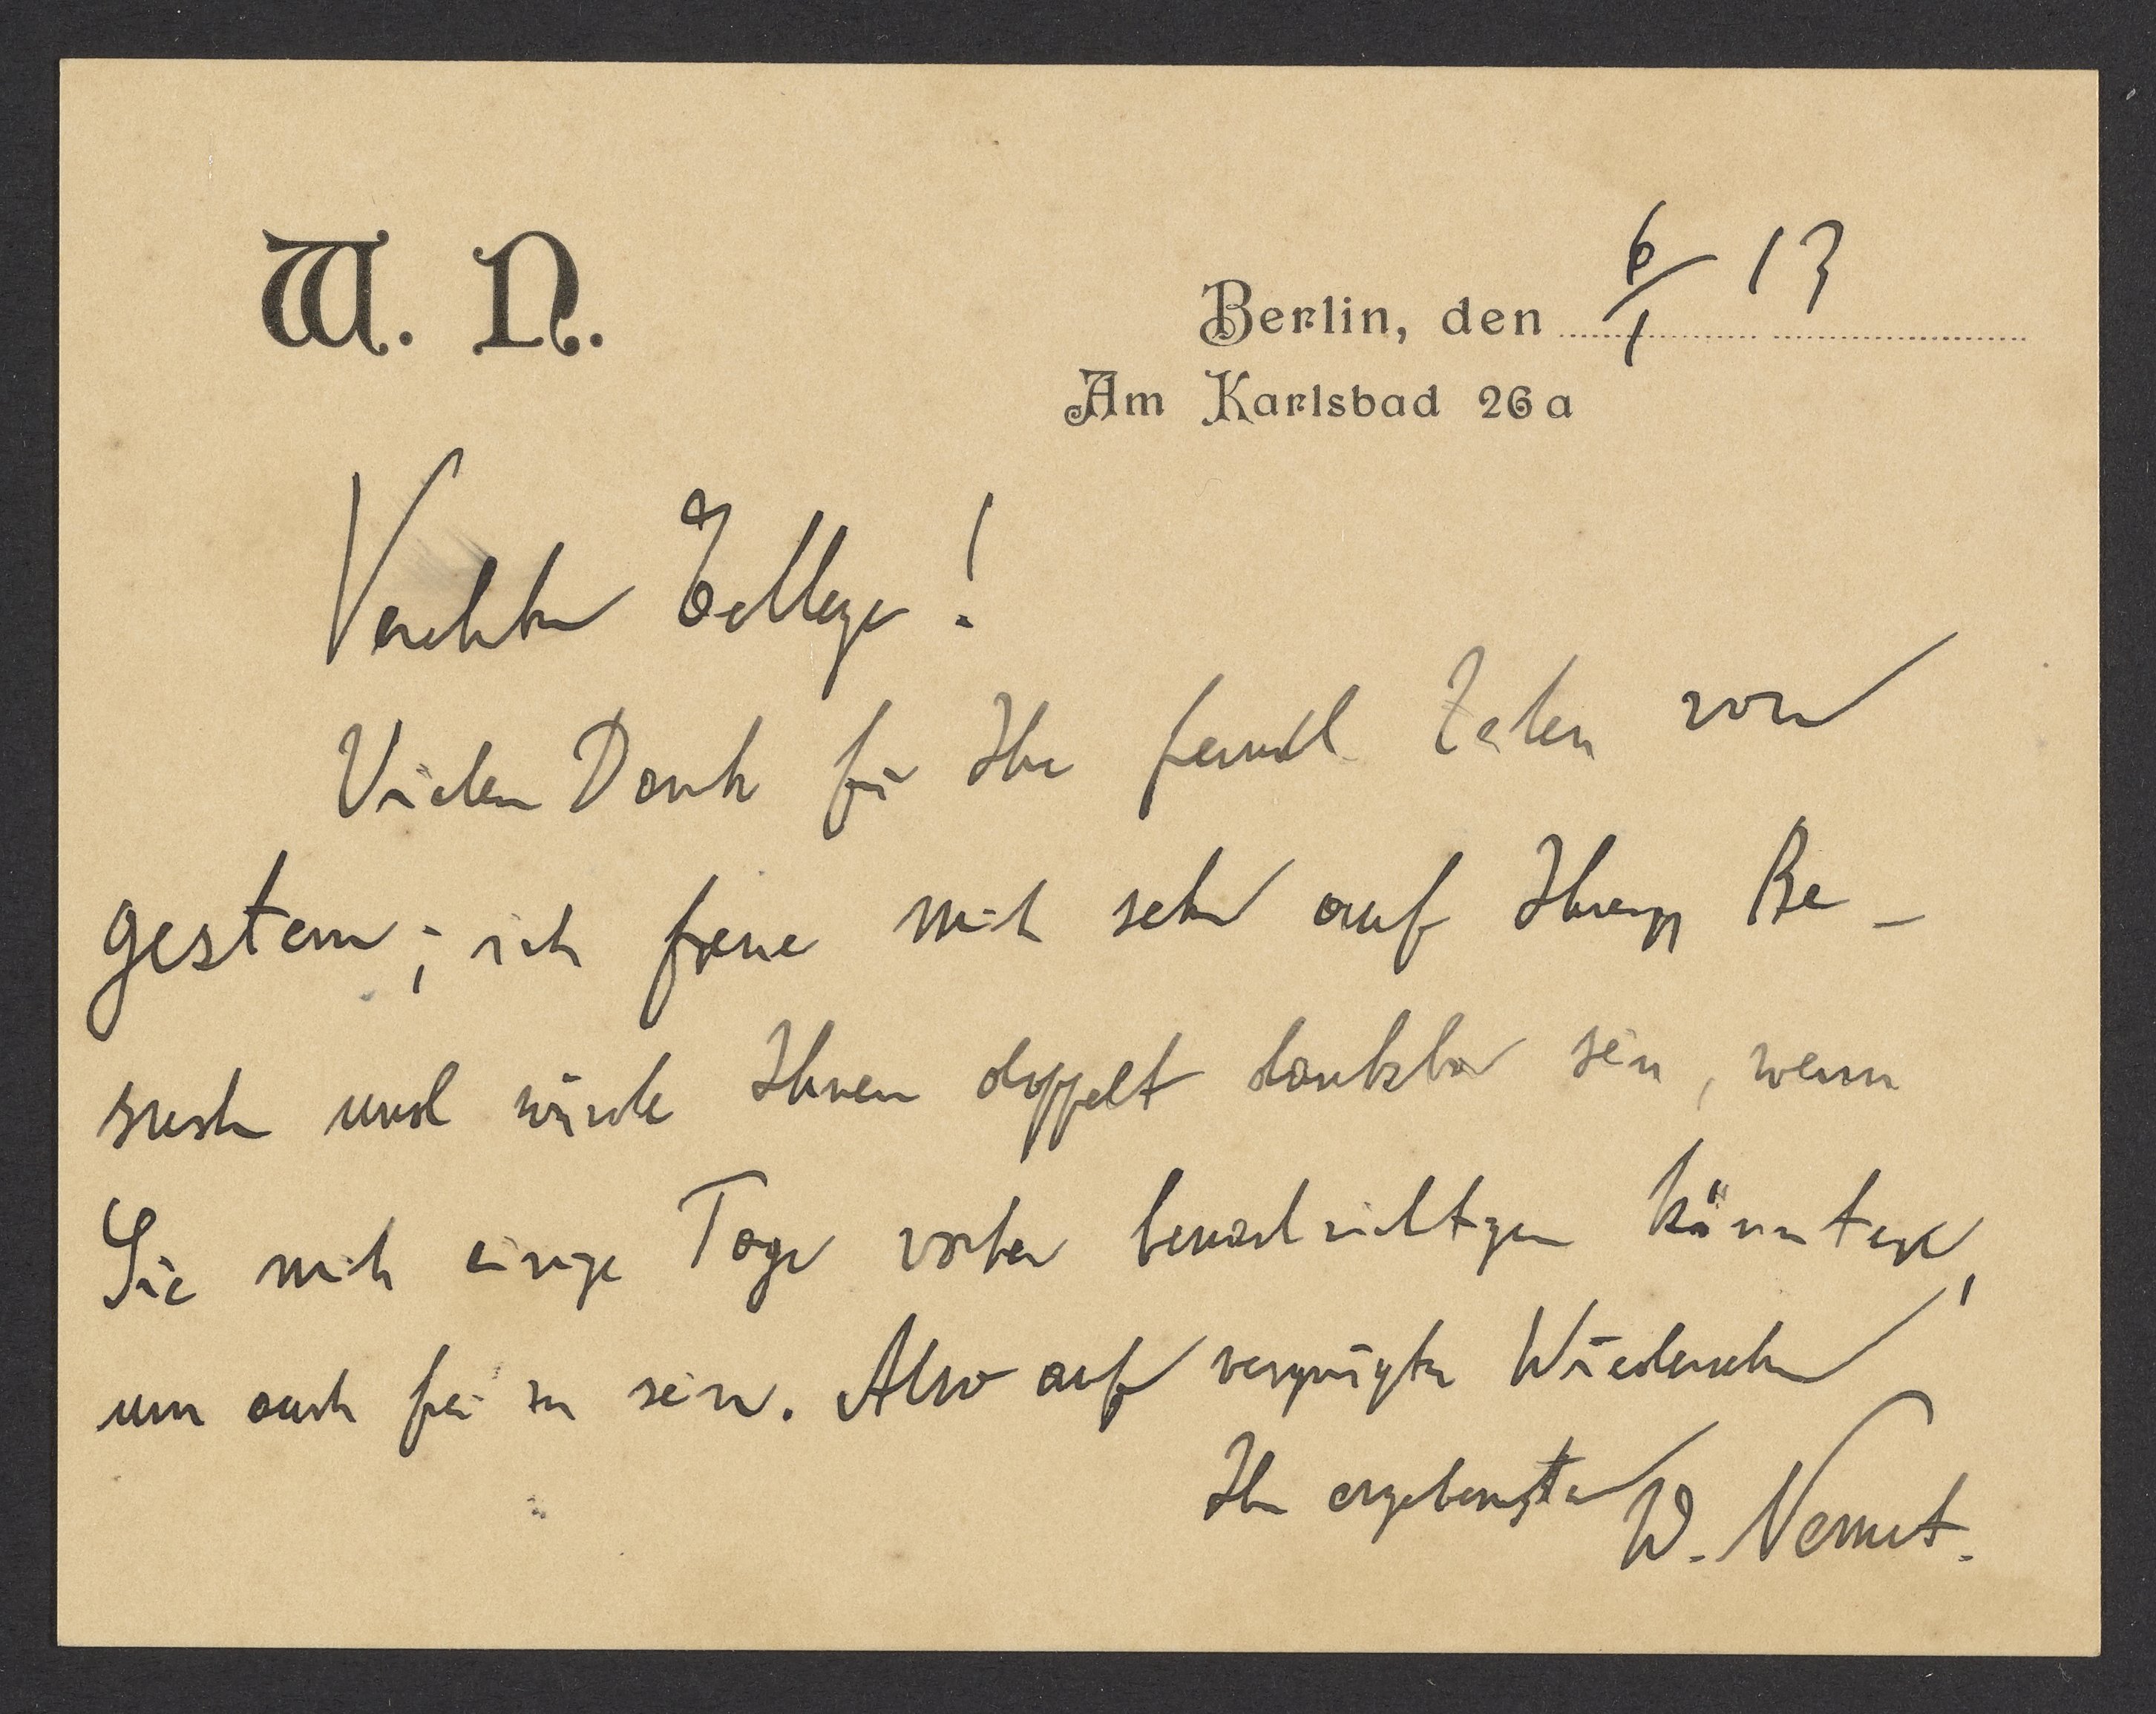 W. N.
Berlin, den 6/1 13
Am Karlsbad 26a
Verehrter College!
Vielen Dank für Ihre freundl Zeilen von
gestern; ich freue mich sehr auf Ihren Be-
such und würde Ihnen doppelt dankbar sein, wenn
Sie mich einige Tage vorher benachrichtigen könnten,
um auch frei zu sein. Also auf vergnügtes Wiedersehen
Ihr ergebenster W. Nernst.